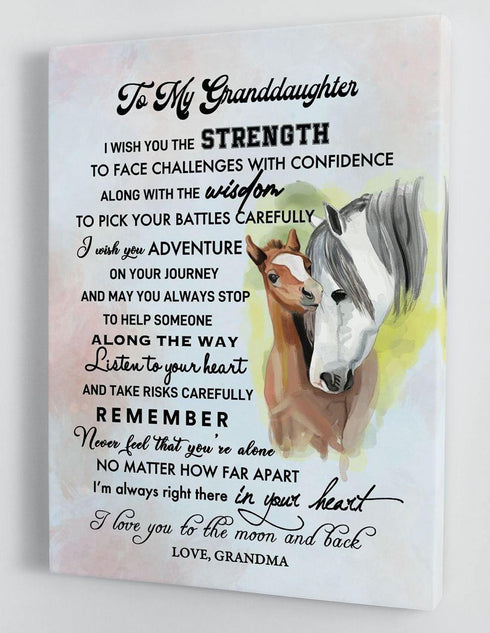 To My Granddaughter
I WISH YOU THE STRENGTH
TO FACE CHALLENGES WITH CONFIDENCE
ALONG WITH THE wisdom
TO PICK YOUR BATTLES CAREFULLY
I wish you ADVENTURE
ON YOUR JOURNEY
AND MAY YOU ALWAYS STOP
TO HELP SOMEONE
ALONG THE WAY
Listen to your heart
AND TAKE RISKS CAREFULLY
REMEMBER
Never feel that you're alone
NO MATTER HOW FAR APART
I'm always right there in your heart
I love you to the moon and back
LOVE, GRANDMA